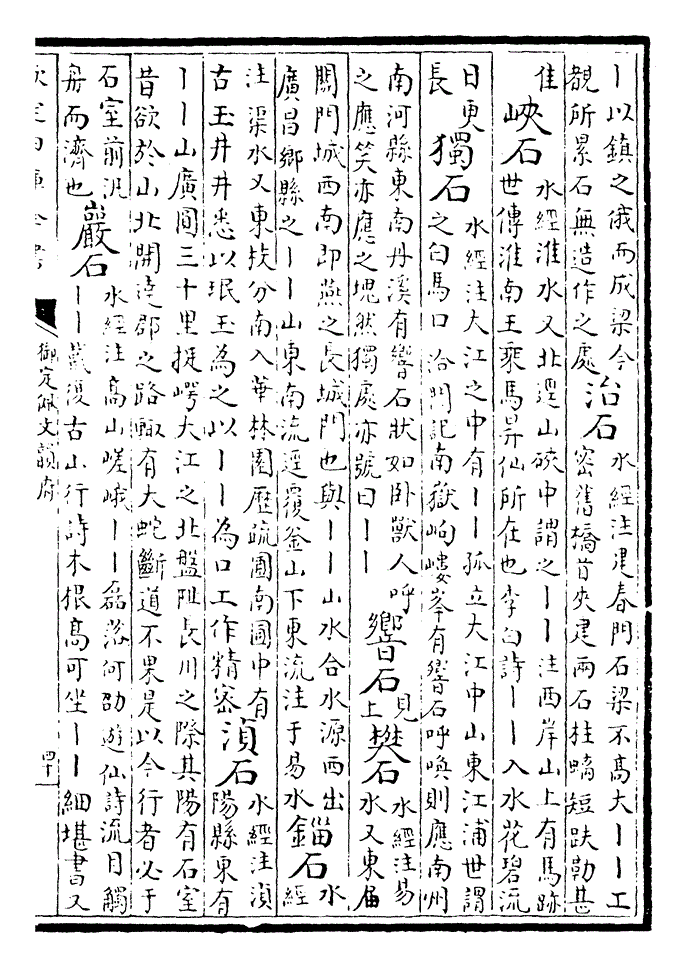 丨以鎮之俄而成梁今
覩所累石無造作之處
治石
水經注建春門石梁不高大丨丨工
密舊橋首夾建兩石柱螭矩趺勒甚
佳
峽石
水經淮水又北逕山硤中謂之丨丨注西岸山上有馬跡
世傳淮南王乘馬昇仙所在也李白詩丨丨入水花碧流
日更
長
獨石
水經注大江之中有丨丨孤立大江中山東江浦世謂
之白馬口 洽聞記南嶽岣嶁峯有響石呼喚則應南州
南河縣東南丹溪有響石狀如卧獸人呼
之應笑亦應之塊然獨處亦號曰丨丨
響石
見
上
樊石
水經注易
水又東届
關門城西南即燕之長城門也與丨丨山水合水源西出
廣昌鄉縣之丨丨山東南流逕覆釜山下東流注于易水
錙石
水
經
注渠水又東枝分南入華林園歷疏圃南圃中有
古玉井井悉以珉玉為之以丨丨為口工作精密
湞石
水經注湞
陽縣東有
丨丨山廣圓三十里挺崿大江之北盤阯長川之際其陽有石室
昔欲於山北開達郡之路輒有大蛇斷道不果是以今行者必于
石室前汎
舟而濟也
巖石
水經注高山嵯峨丨丨磊落何劭遊仙詩流目觸
丨丨戴復古山行詩木根高可坐丨丨細堪書又
欽定四庫全書
御定佩文韻府
四十